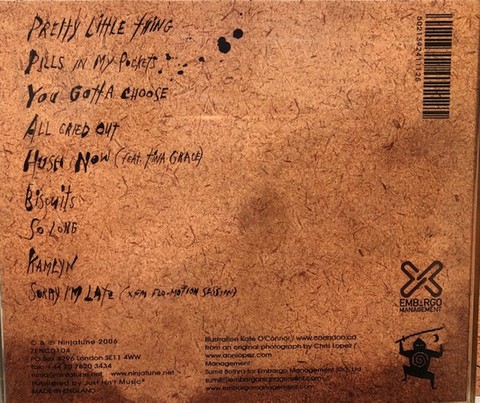 Pretty Little Thing
Pills in my Pockets
You Gotta Choose
All Cried Out
Hush Now (feat. Tina Grace)
Biscuits
So Long
Kamlyn
Sorry I'm Late (XFM Flo-Motion Session)
5021392411126
EMBARGO
MANAGEMENT
© & ℗ Ninjatune 2006
ZENCD104
PO Box 4296 London SE11 4WW
fax: +44 20 7820 3434
www.ninjatune.net
Published by Just Isn't Music
MADE IN ENGLAND
Illustration Kate O'Connor /
from an original photograph by Chris Lopez /
Management:
for Embargo Management (UK) Ltd
www.embargomanagement.com